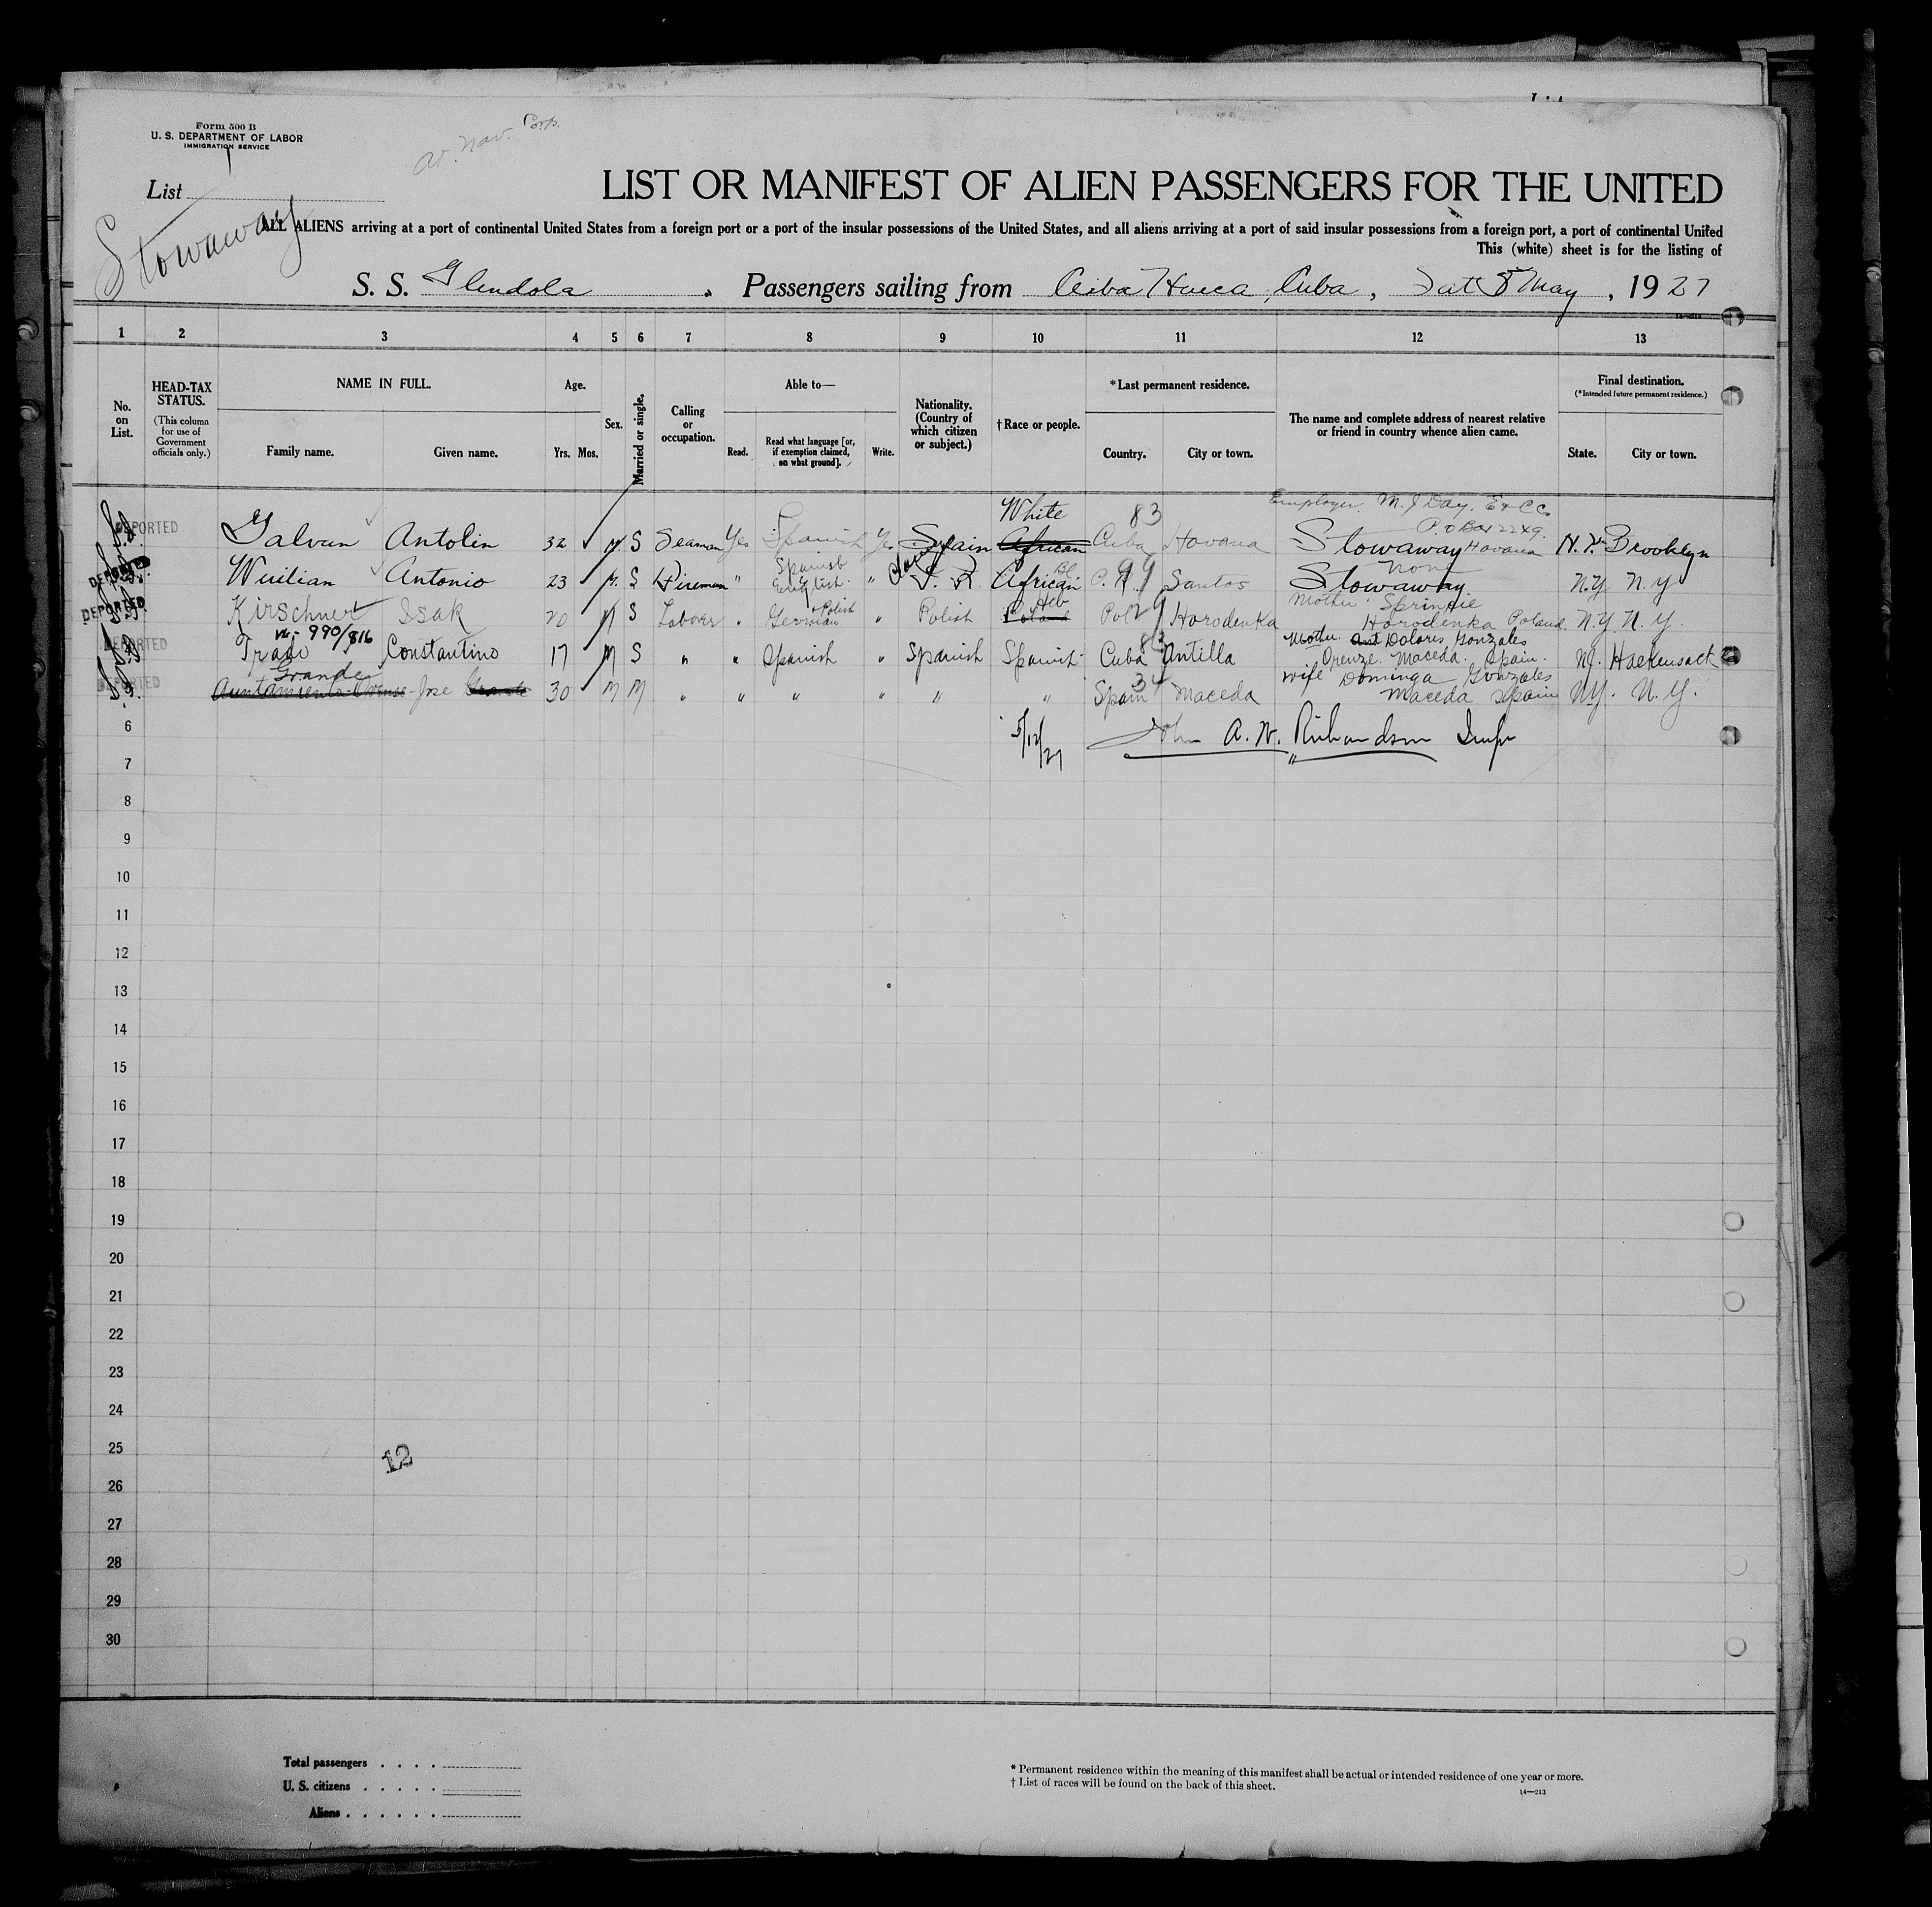 Form 500 B
U. S. DEPARTMENT OF LABOR
IMMIGRATION SERVICE
List
Stowaway
LIST OR MANIFEST OF ALIEN PASSENGERS FOR THE UNITED
ALL ALIENS arriving at a port of continental United States from a foreign port or a port of the insular possessions of the United States, and all aliens arriving at a port of said insular possessions from a foreign port, a port of continental United
This (white) sheet is for the listing of
S. S. Glendola, Passengers sailing from Ceiba Hueca, Cuba, Sat 8 May, 1927
1 2 3 4 5 6 7 8 9 10 11 12 13
No. on List.
HEAD-TAX STATUS.
(This column for use of Government officials only.)
NAME IN FULL.
Family name. Given name.
Age.
Yrs. Mos.
Sex.
Married or single.
Calling or occupation.
Able to—
Read. Read what language [or, if exemption claimed, on what ground]. Write.
Nationality. (Country of which citizen or subject.)
†Race or people.
*Last permanent residence.
Country. City or town.
The name and complete address of nearest relative or friend in country whence alien came.
Final destination.
(*Intended future permanent residence.)
State. City or town.
White 83 Employer. M. J. Day.
P.O Box 2249.
DEPORTED Galvan Antolin 32 M S Seaman Yes Spanish Yes Spain African Cuba Havana Stowaway Havana N.Y. Brooklyn
Spanish Bl 99 None
DEPORTED Wuilian Antonio 23 M. S Fireman " English " African Santos Stowaway N.Y N.Y
Polish Heb 29 Mother Sprintie
DEPORTED Kirschner Isak 20 M S Laborer " German " Polish Poland Pol Horodenka Horodenka Poland N.Y. N.Y.
990/816 83 Mother Dolores Gonzales
DEPORTED Constantino 17 M S " " Spanish " Spanish Spanish Cuba Antilla Orenze. Maceda. Spain. NJ. Hackensack
Grande 34 Wife Dominga Gonzales
DEPORTED Jose Grande 30 M M " " " " " " Spain Maceda Maceda Spain NY. N.Y.
6 5/12/27 John A. W. Richardson Insp
7
8
9
10
11
12
13
14
15
16
17
18
19
20
21
22
23
24
25
12
26
27
28
29
30
Total passengers . . . .
U. S. citizens . . . . .
Aliens . . . . . .
* Permanent residence within the meaning of this manifest shall be actual or intended residence of one year or more.
† List of races will be found on the back of this sheet.
14—213